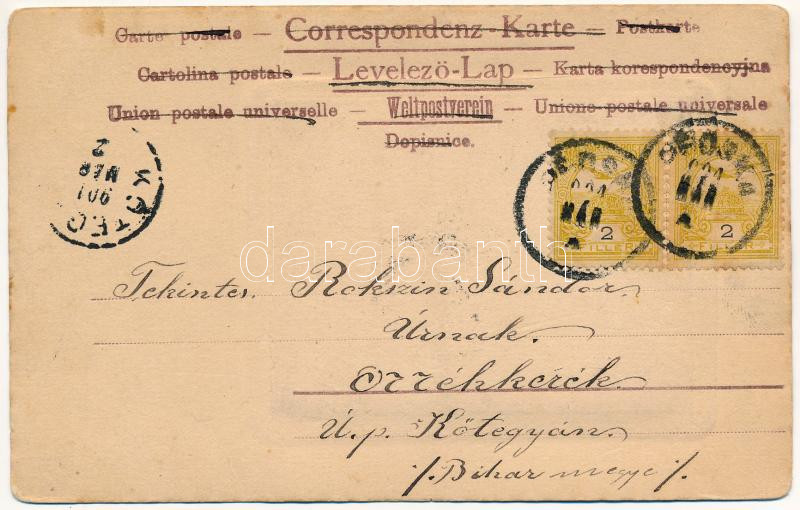 Carte postale — Correspondenz-Karte — Postkarte
Cartolina postale — Levelezö-Lap — Karta korespondencyjna
Union postale universelle — Weltpostverein — Unione postale universale
Dopisnice.
2 FILLÉR
2 FILLÉR
901
MÁR
2
901 MÁR
darabanth
Tekintes. Rokszin Sándor.
Úrnak.
Orréhkerék.
U.p. Kötegyán.
/. Bihar megye /.